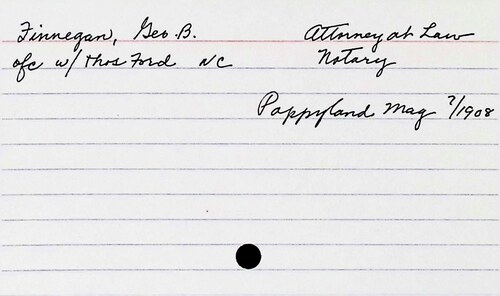 Finnegan, Geo B. Attorney at Law
ofc w/ Thos Ford NC Notary
Poppyland Mag ?/1908